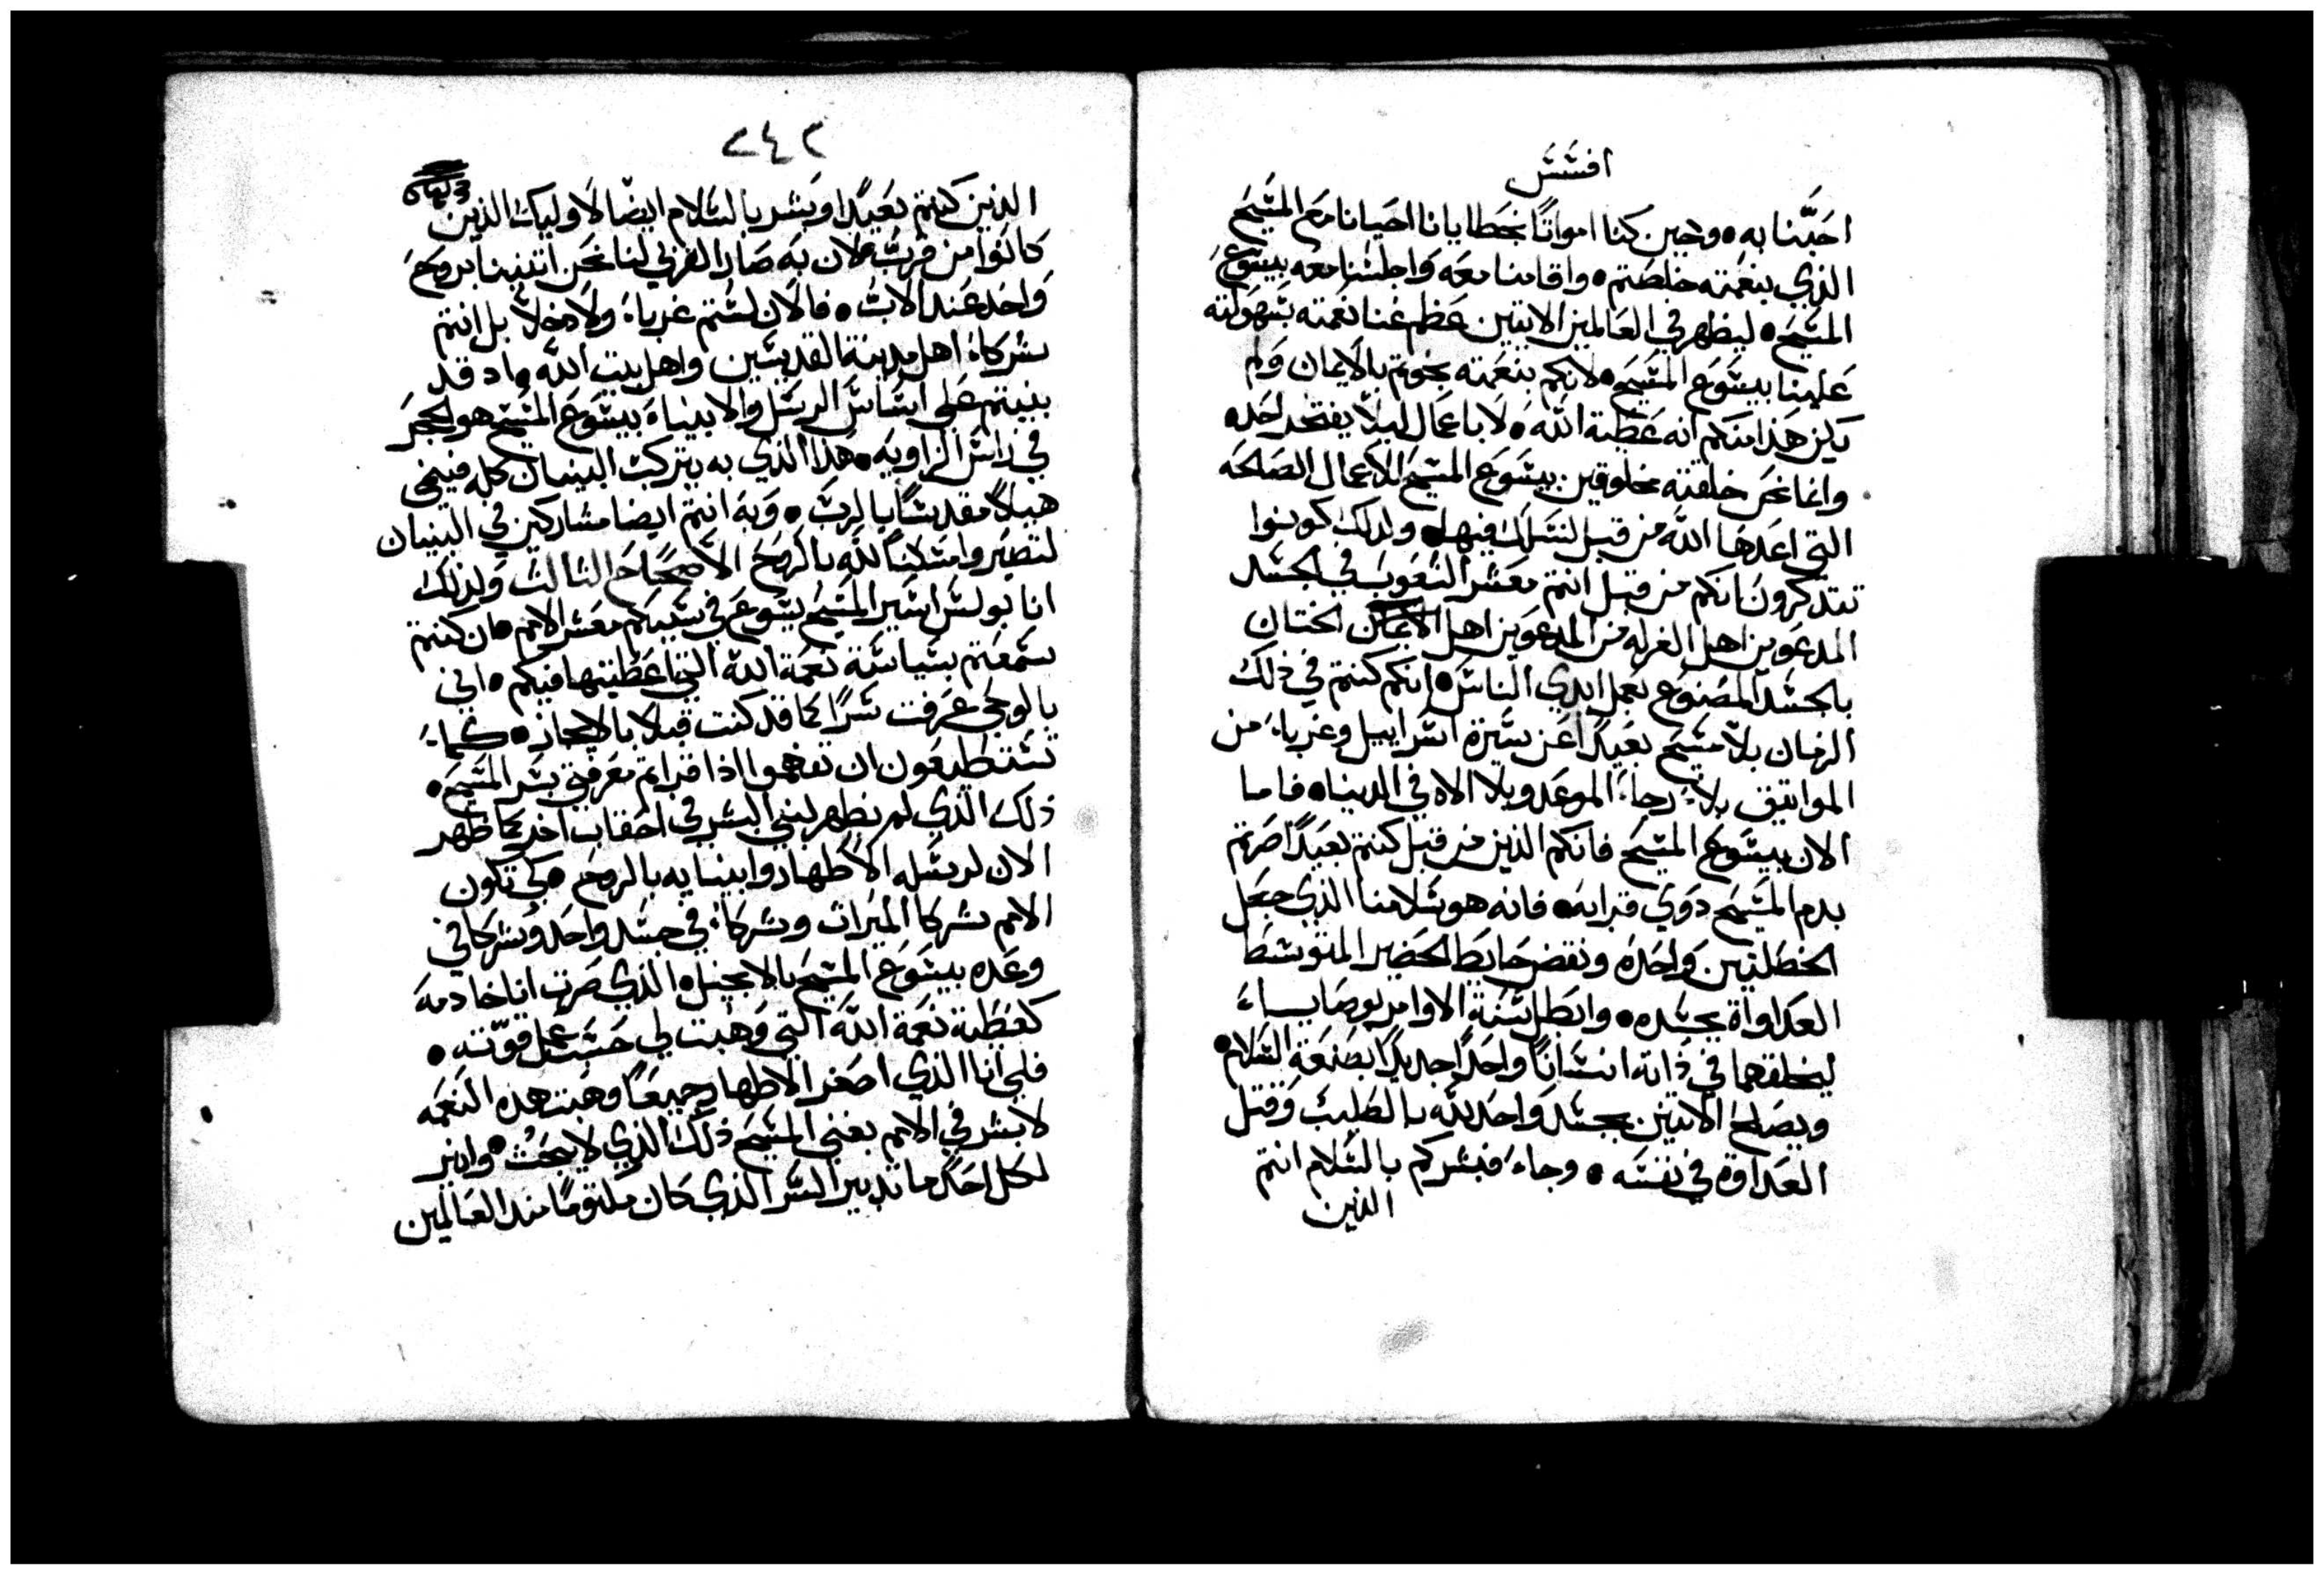 افسس
احبنا به • وحين كنا امواتًا بخطايانا احيانا مع المسيح
الذي بنعمته خلصتم • واقامنا معه واجلسنا معه بيسوع
المسيح • ليظهر في العالمين الاتيين عظم غنا نعمته بسهولته
علينا بيسوع المسيح • لانكم بنعمته نجوتم بالايمان ولم
يكن هذا منكم انه عطية الله • لا باعمال ليلا يفتخر احد •
وانما نحن خلقته مخلوقين بيسوع المسيح للاعمال الصالحه
التي اعدها الله من قبل لنسلك فيها • ولذلك كونوا
تتدكرون انكم من قبل انتم معشر الشعوب في الجسد
المدعوين اهل الغرله من المدعوين اهل الختان
بالجسد المصنوع بعمل ايدي الناس • انكم كنتم في ذلك
الزمان بلا مسيح بعيدًا عن سيرة اسراييل وغربا من
المواتيق بلا رجاء الموعد وبلا الاه في الدنيا • فاما
الان بيسوع المسيح فانكم الذين من قبل كنتم بعيدًا صرتم
بدم المسيح دوي قرابه • فانه هو سلامنا الذي جعل
الخطلتين واحده ونقض حايط الحضير المتوسط
العداواة بجسده • وابطل سنة الاوامر بوصاياء
ليخلقهما في ذاته انسانًا واحدًا جديدًا بصنعة السلام •
ويصلح الاتنين بجسد واحد لله بالصليب وقتل
العداوة في نفسه • وجاء فبشركم بالسلام انتم
الذين
٢٤٢
الذين كنتم بعيدًا وبشر بالسلام ايضا لاوليك الذين
كانوا من قرب • لان به صار القربي لنا نحن اتنيننا بروح
واحد عند الاب • فالان لستم غربا ولا دخلا بل انتم
شركا اهل مدينة القديسين واهل بيت الله • واد قد
بنيتم على اساس الرسل والانبياء بيسوع المسيح هو الحجر
في راس الزاويه • هدا الذي به يتركب البنيان كله فينمي
هيكلًا مقدسًا بالرب • وبه انتم ايضا مشاركين في البنيان
لتصيروا مسكنًا لله بالروح الاصحاح التالت ولذلك
انا بولس اسير المسيح يسوع في سببكم معشر الامم • ان كنتم
سمعتم بسياسة نعمة الله التي اعطيتها فيكم • اني
بالوحي عرفت سرًا كما قد كنت قبلا بالايجاز • كما
تستطيعون ان تفهموا اذا قراتم معرفتي بسر المسيح •
ذلك الذي لم يظهر لبني البشر في احقاب اخر كما ظهر
الان لرسله الاطهار وانبيايه بالروح • كي تكون
الامم شركا الميرات وشركا في جسد واحد وشركا في
وعده بيسوع المسيح بالانجيل • الذي صرت انا خادمه
كعطية نعمة الله التي وهبت لي حسب عمل قوته •
فلي انا الذي اصغر الاطهار جميعًا وهبت هده النعمه
لابشر في الامم بغني المسيح ذلك الذي لا يبحث • وانير
لكل احد ما تدبير السر الذي كان مكتومًا مند العالمين